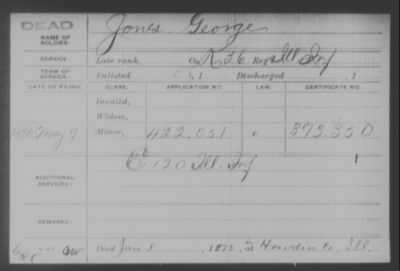 DEAD
NAME OF SOLDIER: Jones George
SERVICE: Late rank, Co. K, 26 Reg't Ill. Inf
TERM OF SERVICE: Enlisted , 1 Discharged , 1
DATE OF FILING. CLASS. APPLICATION NO. LAW. CERTIFICATE NO.
Invalid,
Widow,
1890 Minor, 422.051 373.350
C 120 Ill. Inf 1
ADDITIONAL SERVICES:
REMARKS:
Died Jan 8, 1875, at Co. Ill.